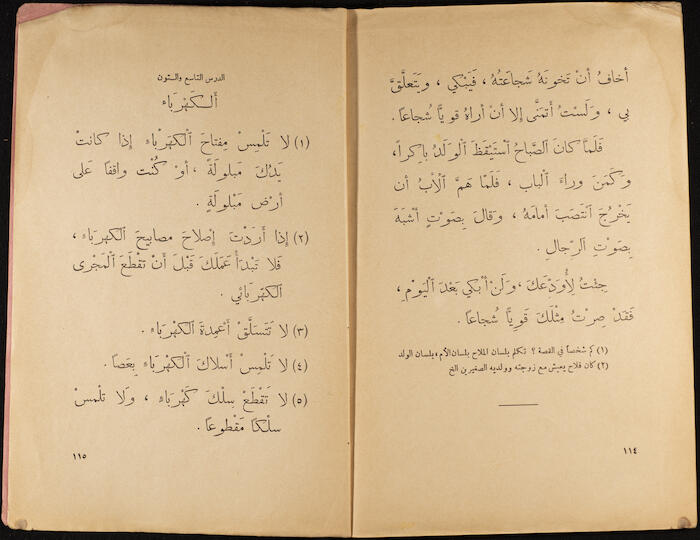 أَخافُ أَنْ تَخونَهُ شَجاعَتُهُ ، فَيَبْكي ، ويَتَعلَّقَ
بي ، وَلَسْتُ أَتَمَنَّى إلا أنْ أراهُ قوِيًّا شُجاعًا .
فَلَمَّا كانَ الصَّباحُ ٱسْتَيْقَظَ ٱلوَلَدُ باكِراً،
وَكَمَنَ وراءَ ٱلباب ، فَلَمَّا هَمَّ ٱلْأَبُ أن
يَخْرُجَ ٱنْتَصَبَ أمامَهُ ، وَقالَ بِصَوْتٍ أَشْبَهَ
بِصَوْتِ ٱلرِّجالِ .
جِئْتُ لِأُوَدِّعَكَ ، وَلَنْ أَبْكي بَعْدَ ٱليَوْمِ ،
فَقَدْ صِرْتُ مِثْلَكَ قَوِيًّا شُجاعًا .
(١) كم شخصاً في القصة ؟ تكلم بلسان الملاح بلسان الأم ، بلسان الولد
(٢) كان فلاح يعيش مع زوجته وولديه الصغيرين الخ
١١٤
الدرس التاسع والستون
أَلكَهْرَباء
(١) لا تَلْمِسْ مِفتاحَ ٱلكَهْرَباء إذا كانتْ
يَدُكَ مَبلولَةً ، أوْ كُنْتَ واقفًا عَلى
أرْضٍ مَبْلولَةٍ .
(٢) إذا أرَدْتَ إصْلاحَ مَصابيحَ ٱلكَهْرَباء ،
فَلا تَبْدَأْ عَمَلَكَ قَبْلَ أَنْ تَقْطَعَ ٱلمَجْرى
ٱلكَهْرَبائي .
(٣) لا تَتَسَلَّقْ أَعْمِدَةَ ٱلكَهْرَباء .
(٤) لا تَلْمِسْ أَسْلاكَ ٱلكَهْرَباء بِعَصاً .
(٥) لا تَقْطَعْ سِلْكَ كَهْرَباء ، وَلا تلمِسْ
سِلْكًا مَقْطوعًا .
١١٥